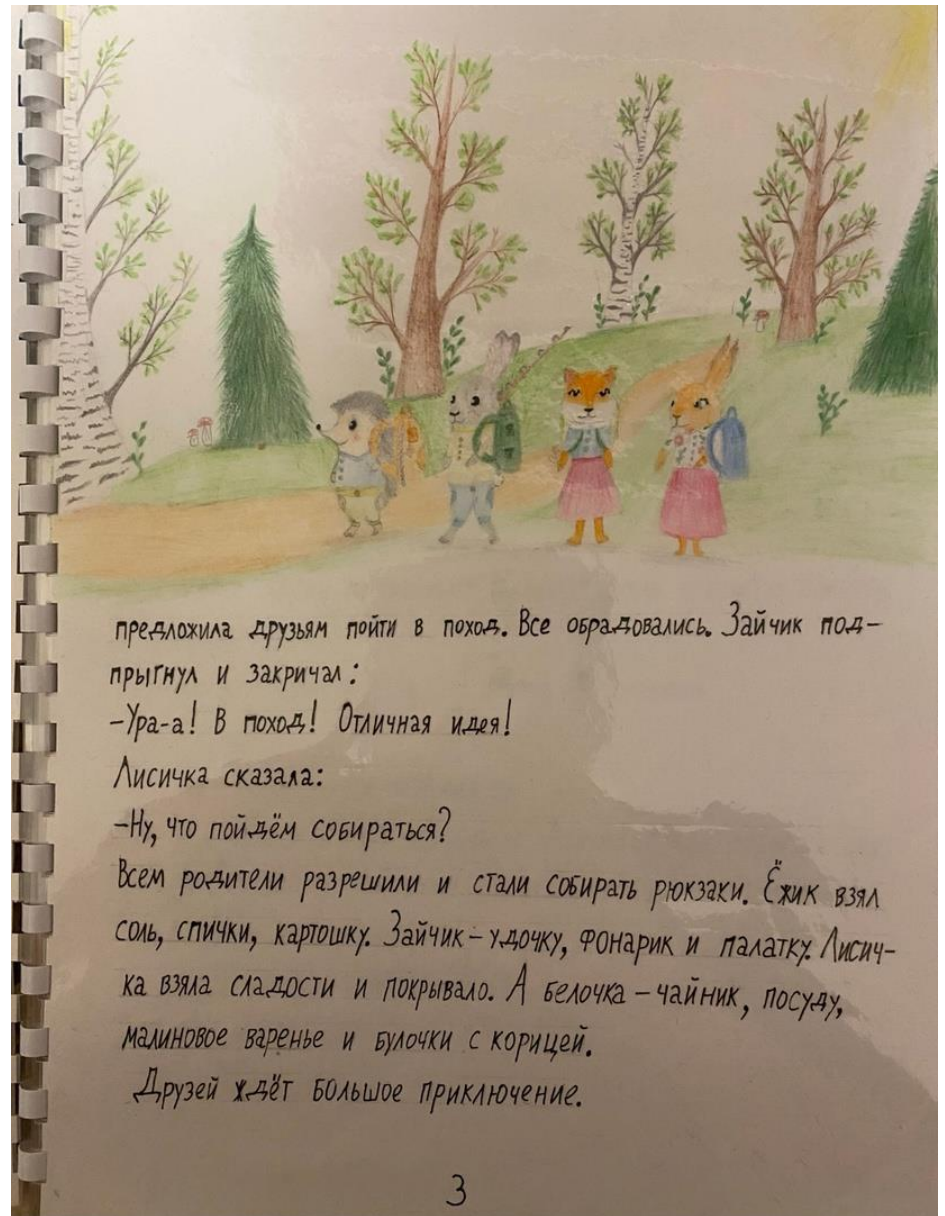 предложила друзьям пойти в поход. Все обрадовались. Зайчик под-
прыгнул и закричал:
-Ура-а! В поход! Отличная идея!
Лисичка сказала:
-Ну, что пойдём собираться?
Всем родители разрешили и стали собирать рюкзаки. Ёжик взял
соль, спички, картошку. Зайчик – удочку, фонарик и палатку. Лисич-
ка взяла сладости и покрывало. А белочка – чайник, посуду,
малиновое варенье и булочки с корицей.
Друзей ждёт большое приключение.
3